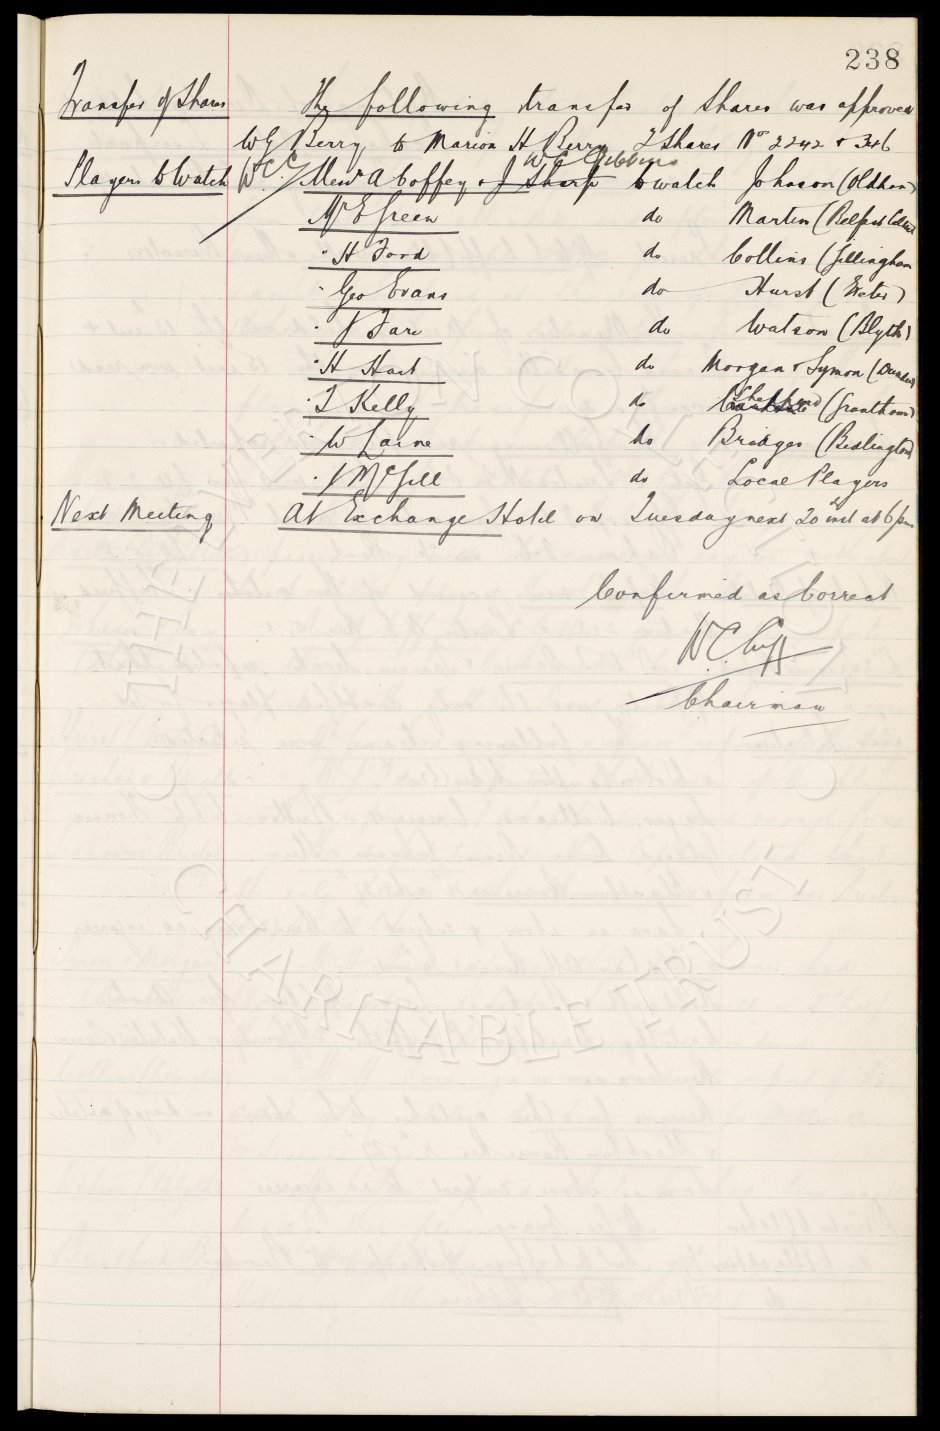 238
Transfer of Shares The following transfer of Shares was approved
W G Berry to Marion H Berry 2 Shares Nos 2242 & 346
W C Gibbins
Players to Watch W.C.C. Messrs A Coffey & J Sharp to watch Johnson (Oldham)
Mr E Green do Martin (Belfast Celtic)
" H Ford do Collins (Gillingham
" Geo Evans do Hurst (Exeter)
" J Fare do Watson (Blyth)
" H Hart do Morgan & Symon (Dundee)
" T Kelly do Shepherd (Grantham)
" W Laine do Bridges (Bedlington)
" J McGill do Local Players
Next Meeting At Exchange Hotel on Tuesday next 20th inst at 6 pm
Confirmed as Correct
W.C. Cuff
Chairman
THE EVERTON COLLECTION
CHARITABLE TRUST